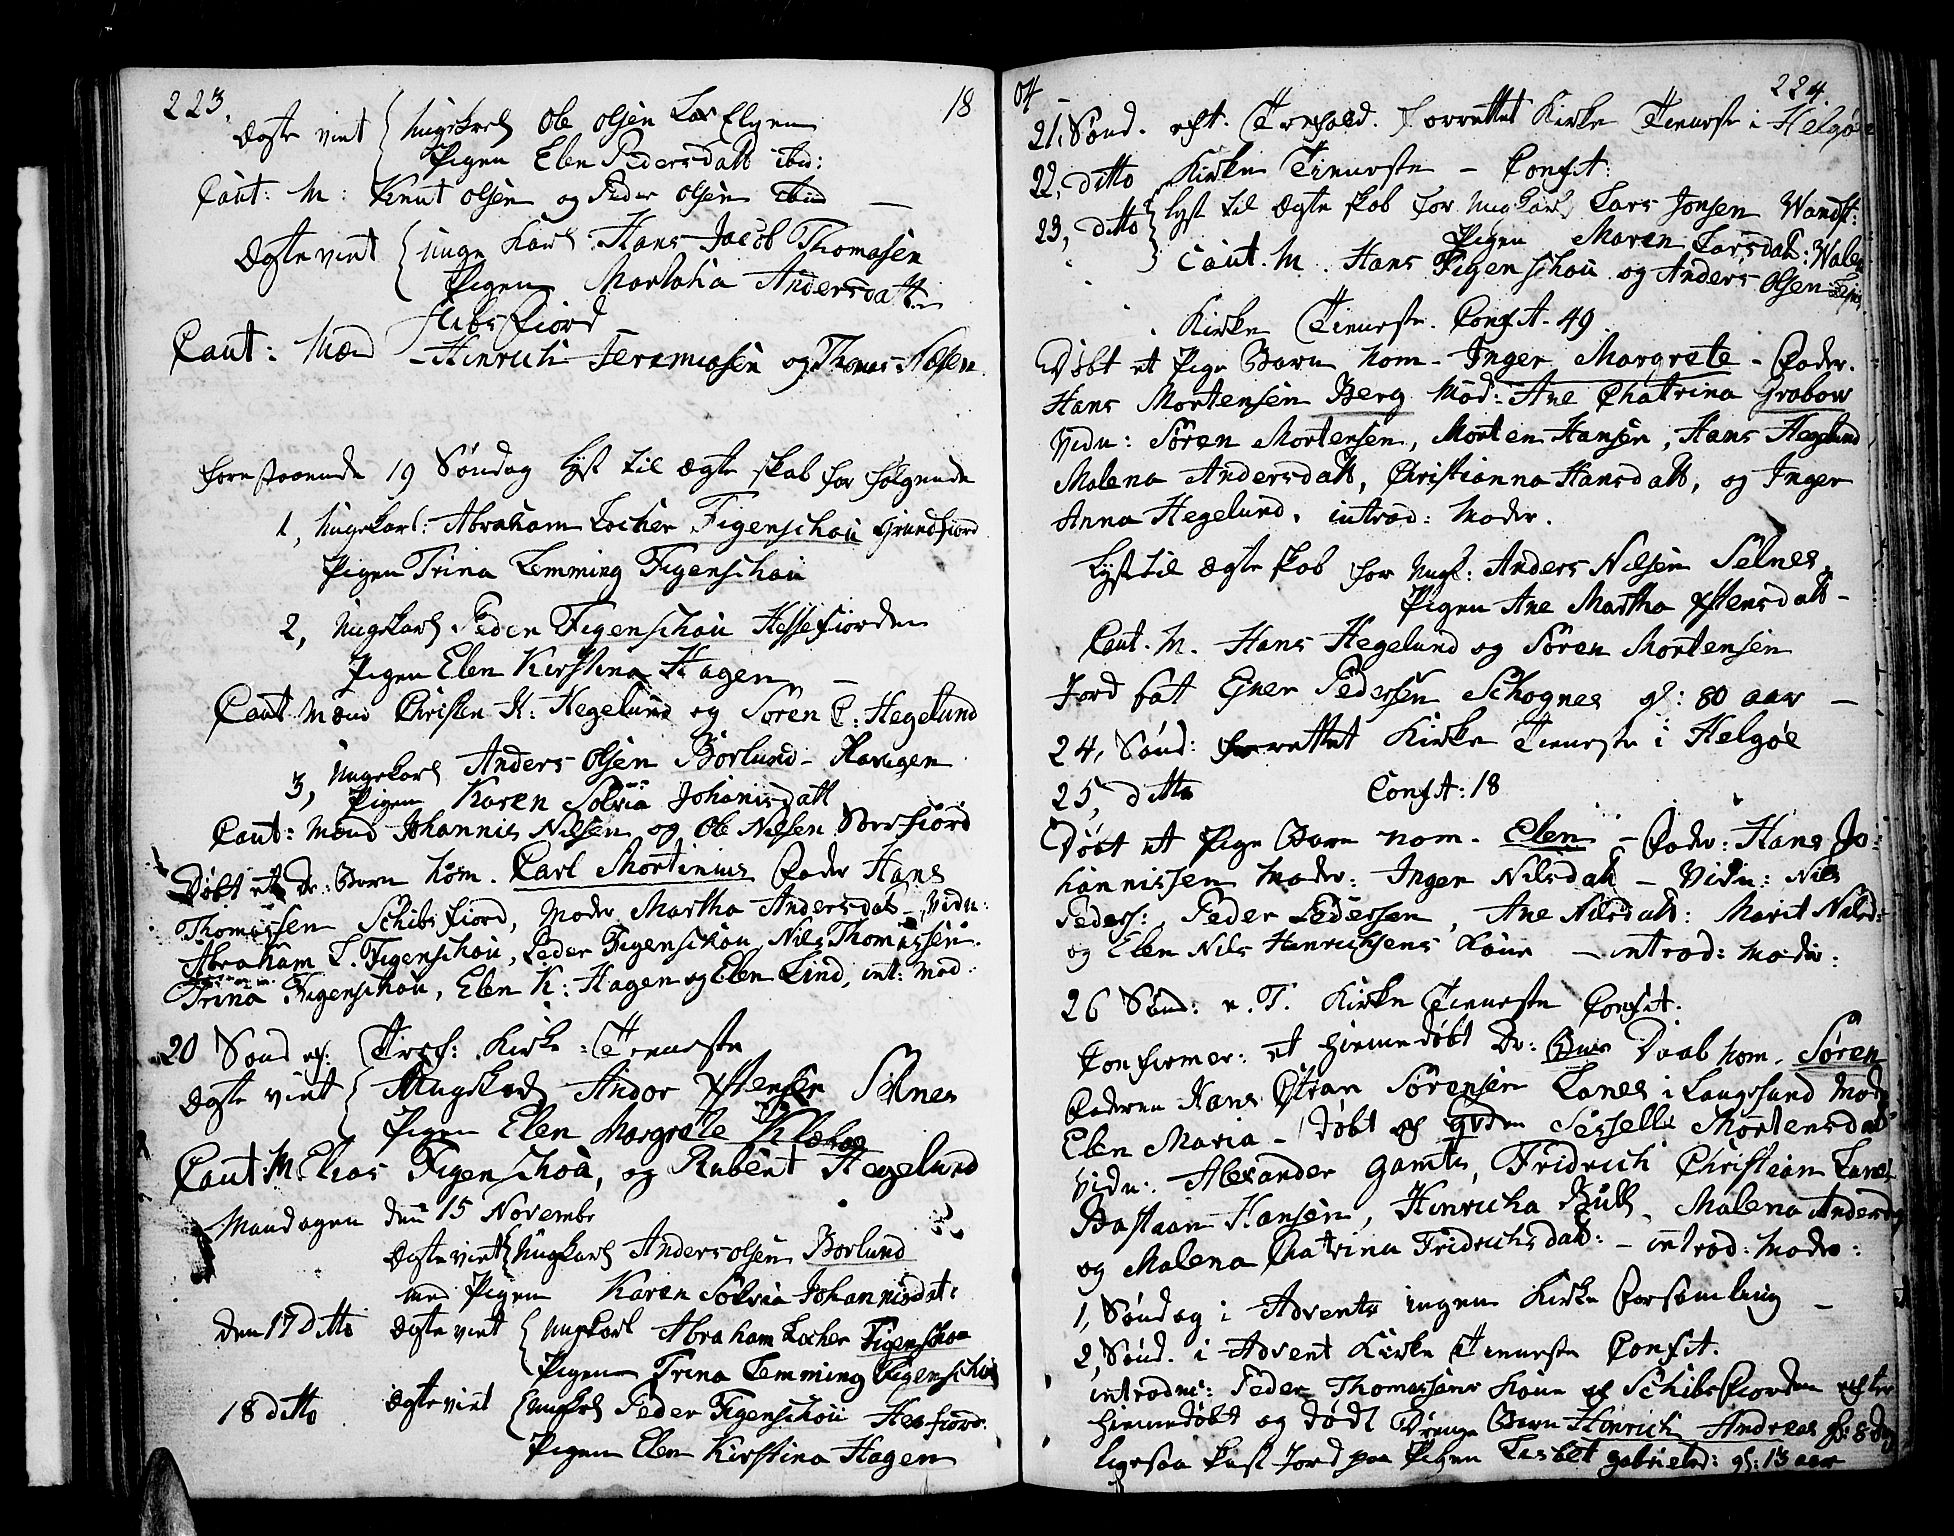 223. 18
Ægte viet Ungekarl Ole Olsen
Pigen Elen Pedersdatt ibid:
Caut: M: Knut Olsen og Peder Olsen ibid
Ægte viet unge Karl Hans Jacob Thomasen
Pigen Martha Andersdatter
Skibsfiord
Caut: Mænd Hinrich Jeremiasen og Thomas Nilsen
forestaaende 19 Søndag lyst til ægte skab for følgende
1, Ungekarl: Abraham Locher Figenschou Grundfiord
Pigen Trina Lemming Figenschou
2, Ungkarl Peder Figenschou Hessefiorden
Pigen Elen Kirstina Hagen
Caut Mænd Christen H: Hegelund og Søren C: Hegelund
3, Ungekarl Anders Olsen Borlund
Pigen Karen Solvia Johanisdatt
Caut: Mænd Johannis Nilsen og Ole Nilsen
Døbt et Dr: Barn nom. Carl Mortinius Fader Hans
Thomassen Schibsfiord, Moder Martha Andersdat - Vidn:
Abraham L. Figenschou, Peder Figenschou, Nils Thomassen.
Trina Figenschou, Elen K: Hagen og Elen Lind, int: Mod:
20 Sønd ef: Tref: Kirke Tieneste
Ægte viet Ungekarl Andor Estensen Selnes
Pigen Elen Margrete
Caut: M. Elias Figenschou, og Rubent Hegelund
Mandagen den 15 Novembr
Ægte viet Ungkarl Anders Olsen Borlund
med Pigen Karen Solvia Johannisdat:
Den 17 Ditto Ægte viet Ungkarl Abraham Locher Figenschou
Pigen Trina Lemming Figenschou
18 ditto Ægte viet Ungkarl Peder Figenschou Hessfiord:
Pigen Elen Kirstina Hagen
04 224.
21, Sønd. eft. Trefold. forrettet Kirke Tieneste i Helgøe
22, ditto Kirke Tieneste - Confit:
23, ditto lyst til Ægte skab for Ungkarl Lars Jonsen
Pigen Maren Larsdat:
Caut. M. Hans Figenschou og Anders Olsen
Kirke Tieneste. Confit. 49
Døbt et Pige Barn nom - Inger Margrete - Fader.
Hans Mortensen Berg Mod: Ane Chatrina Grabow
Vidn: Søren Mortensen, Morten Hansen, Hans Hegelund
Malena Andersdatt, Christianna Hansdatt, og Inger
Anna Hegelund. introd: Moder.
Lyst til Ægte skab for Ungk: Anders Nilsen Selnes,
Pigen Ane Martha Estensdatt -
Caut. M. Hans Hegelund og Søren Mortensen
Jord fat Ejner Pedersen Schognes gl: 80 aar -
24, Sønd: forrettet Kirke Tieneste i Helgøe
25, ditto Confit: 18
Døbt et Pige Barn nom. Elen - Fader: Hans Jo:
hannissen Moder: Inger Nilsdatt - Vidn: Nils
Peders:, Peder Pedersen, Ane Nilsdatt: Marit Nilsd:
og Elen Nils Henrichsens Kone - introd: Moder:
26 Sønd: e. T. Kirke Tieneste Confit:
Confirmer: et hiemmedøbt Dr: Barn Daab nom. Søren
Faderen Hans Sørensen Lanes i Langsund Moder
Elen Maria - døbt af Sessellia Mortensdatt
Vidn: Alexander Gamts, Fridrich Christian Lanes
Bastian Hansen, Hinricha Bull, Malena Andersd
og Malena Chatrina Fridrichsdatt: - introd: Moder:
1, Søndag i Advents ingen Kirke Forsamling -
2, Sønd. i Advent Kirke Tieneste Confit.
introduc: Peder Thomassens Kone af Schibsfiorden efter
hiemmedøbt og dødt Drenge Barn Hinrich Andreas gl: 8 dag
ligesaa kast Jord paa Pigen Lisbet Gabrielsd: gl: 13 aar